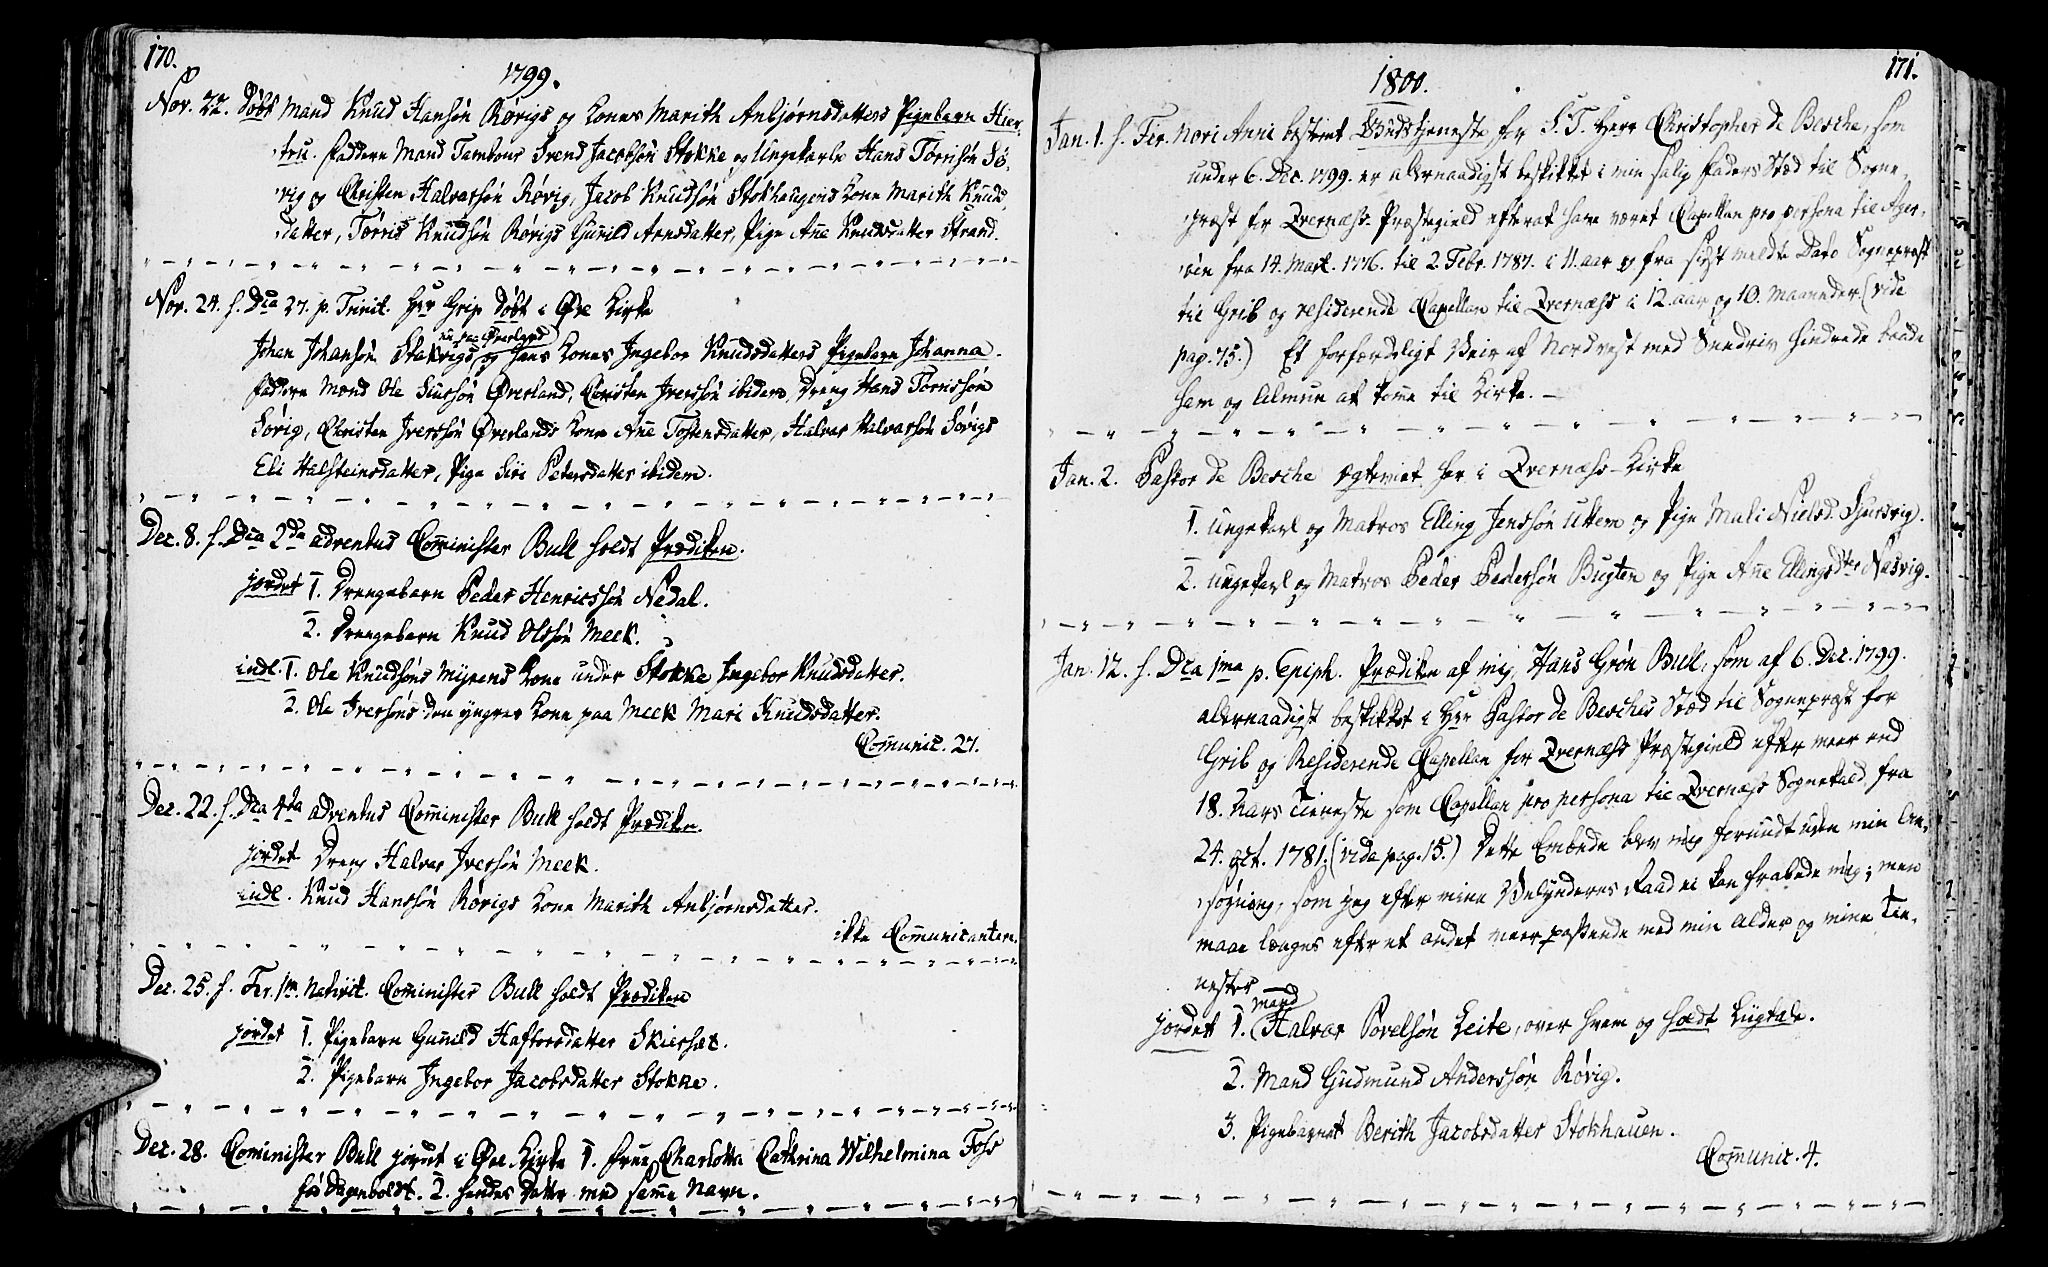 170.
1799.
Nov. 22. Døbt Mand Knud Hansøn Rørigs og Kones Marith Anbjørnsdatters Pigebarn Hier-
tru. Faddere Mand Tambour Svend Jacobsøn Stokke og Ungekarle Hans Tørrisøn Sø-
vig og Christen Halvarsøn Rørig, Jacob Knudsøn Stokhaugens Kone Marith Knuds-
datter, Tørris Knudsøn Rørigs Gunild Arnsdatter, Pige Añe Knudsdatter Strand.
Nov. 24. f. Dca 27. p. Trinit. Hr Grip Døbt i Øre Kirke
nu paa Øverland
Johan Johansøn Stakvigs og hans Kones Ingebor Knudsdatters Pigebarn Johanna.
Faddere Mænd Ole Siursøn Øverland, Christen Iversøn ibidem, Dreng Hans Tørrissøn
Sørig, Christen Iversøn Øverlands Kone Añe Tostensdatter, Halvor Halvarsøn Sørigs
Eli Halsteinsdatter, Pige Siri Petersdatter ibidem.
Dec. 8. f. Dca 2da adventus Com̃inister Bull holdt Prædiken.
jordet 1. Drengebarn Peder Henricssøn Nedal.
2. Drengebarn Knud Olssøn Meek.
indl. 1. Ole Knudsøns Myrens Kone under Stokke Ingebor Knudsdatter.
2. Ole Iversøns den yngres Kone paa Meek Mari Knudsdatter.
Com̃unic. 27.
Dec. 22. f. Dca 4ta adventus Com̃inister Bull holdt Prædiken.
jordet Dreng Halvor Iversøn Meek.
indl. Knud Hanssøn Rørigs Kone Marith Anbjørnsdatter.
ikke Com̃unicanter.
Dec. 25. f. Fer. 1m. Nativit. Com̃inister Bull holdt Prædiken
jordet 1. Pigebarn Gunild Haftorsdatter Skiersæt.
2. Pigebarn Ingebor Jacobsdatter Stokke.
Dec. 28. Com̃inister Bull jordet i Øre Kirke 1. Frue Charlotta Cathrina Wilhelmina Foss
fød Dagenboldt. 2. hendes Datter med sam̃e Navn.
171.
1800.
Jan. 1. f. Fer. Novi Anni bestemt Gudstjeneste for S. T. Herr Christopher de Besche, som
under 6. Dec. 1799. er allernaadigst beskikket i min salig Faders Stæd til Sogne-
præst for Qvernæss-Præstegield efterat have været Capellan pro persona til Ager-
øen fra 14. Mart. 1776. til 2. Febr. 1787. i 11. aar og fra sidst meldte Dato Sognepræst
til Grib og residerende Capellan til Qvernæss i 12. aar og 10. Maaneder. (vide
pag. 75.) Et forfærdeligt Veir af Nordvest med Sneedriv hindrede baade
ham og Almue at kom̃e til Kirke. -
Jan. 2. Pastor de Besche ægteviet her i Qvernæss-Kirke
1. Ungekarl og Matros Elling Jenssøn Uttem og Pige Mali Nielsd. Siursvig.
2. Ungekarl og Matros Peder Pedersøn Bugten og Pige Añe Ellingsdter Nasvig.
Jan. 12. f. Dca 1ma p. Epiph. Prædiken af mig, Hans Grøn Bull, som af 6. Dec. 1799.
allernaadigst beskikket i Hr Pastor de Besches Stæd til Sognepræst for
Grib og Residerende Capellan for Qvernæss Præstegield efter meer end
18. Aars Tieneste som Capellan pro persona til Qvernæss Sognekald fra
24. oct. 1781. (vide pag. 15.) Dette Embede blev mig forundt uden min An-
søgning, som jeg efter mine Velynderes Raad ei kan frabede mig; men
maae længes efter et andet meer passende med min Alder og mine Tie-
nester
jordet 1. Mand Halvor Povelsøn Leite, over hvem og holdt Liigtale.
2. Mand Gudmund Anderssøn Rørig.
3. Pigebarnet Berith Jacobsdatter Stokhauen.
Com̃unic. 4.